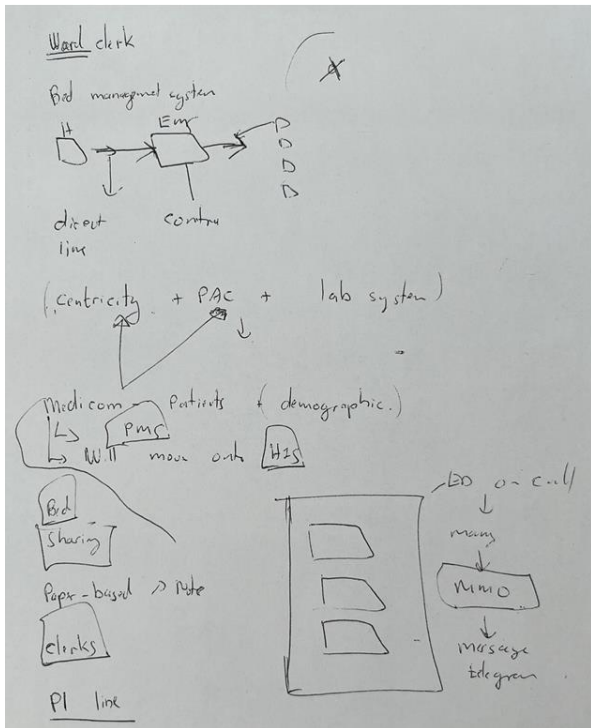 Ward clerk
Bed managmet system
H
Emr
D
D
D
D
direct
line
(Centricity + PAC + lab system)
Medicom - Patients + (demographic.)
PMS
Will move onto HIS
Bed
Sharing
Paper-based → Note
clerks
PI line
ED on call
many
MMO
message
telegram